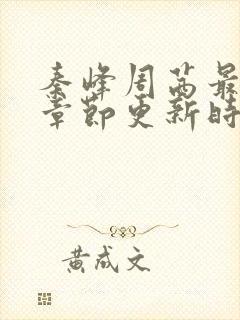 秦峰周茜最
章节更新时
黄成文